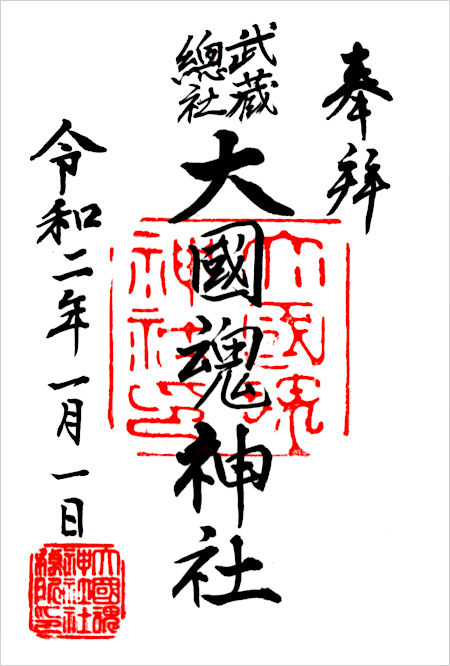 奉拜
武蔵
總社
大國魂神社
令和二年一月一日
大國魂
神社印
大國魂
神社社